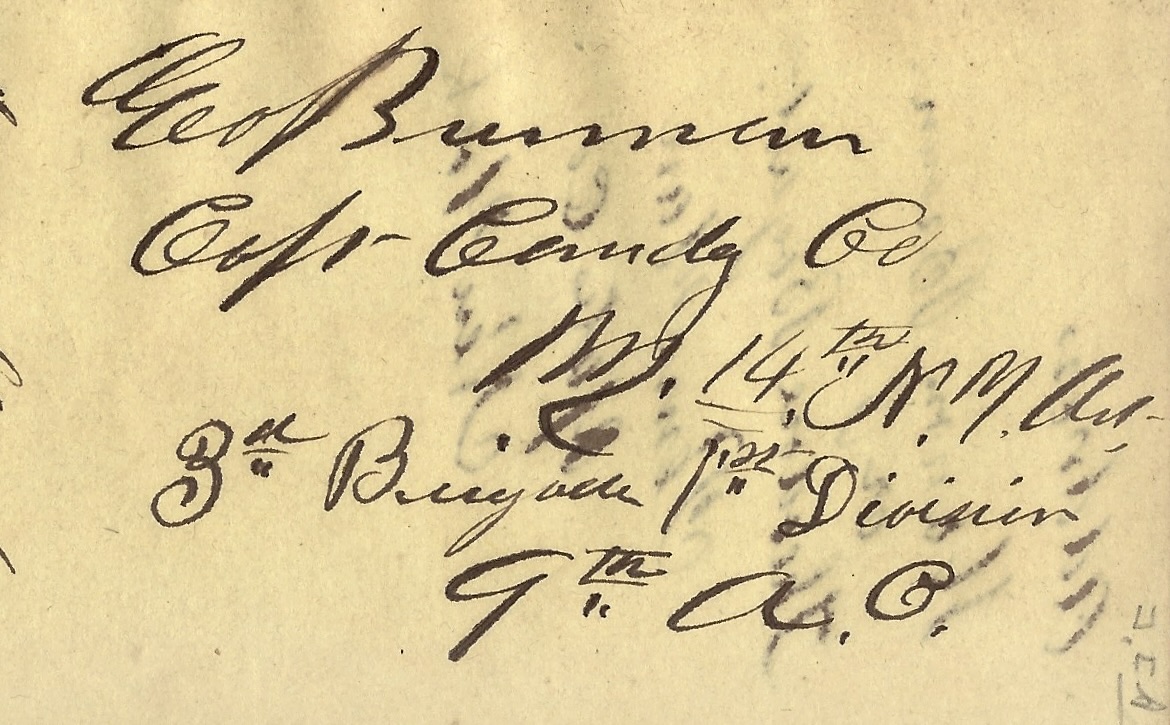 Geo Brennan
Capt Comdg Co
M. 14th N.Y. Art.
3rd Brigade 1st Division
9th A. C.